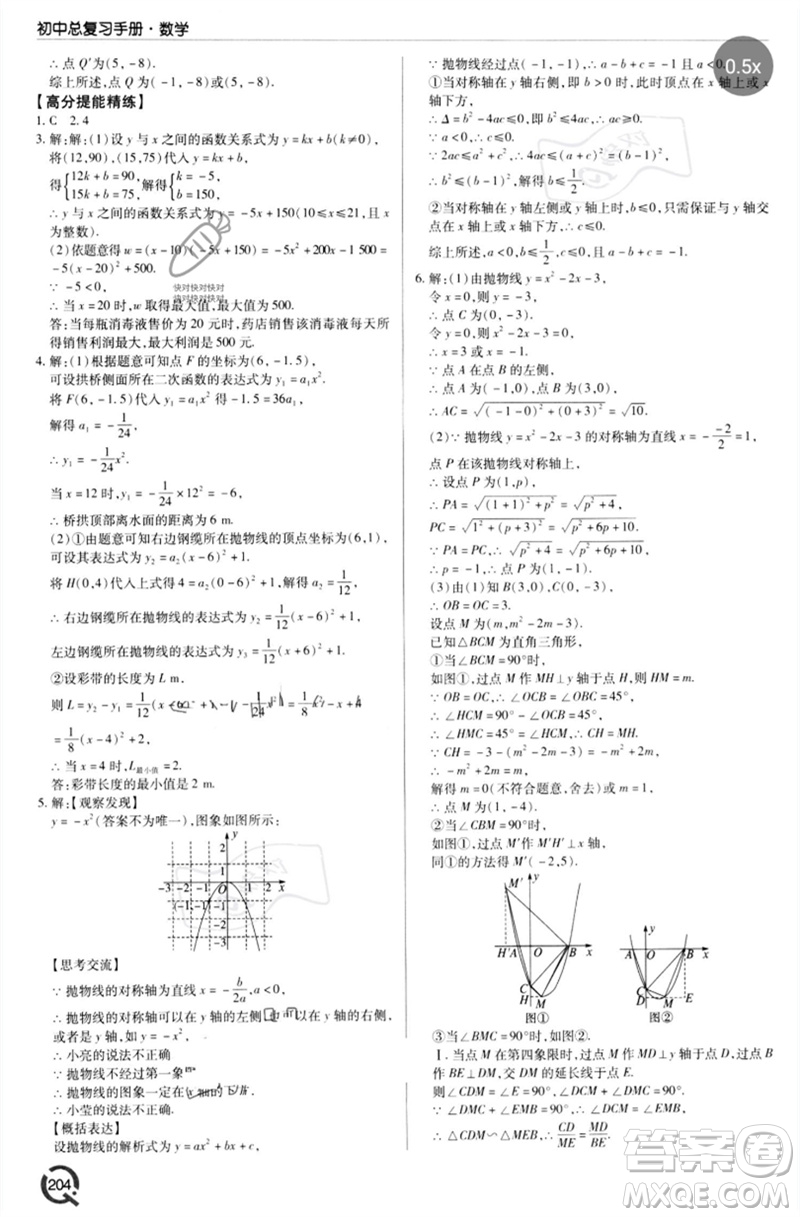 初中总复习手册·数学
∴ 点 Q′为(5,-8).
综上所述,点 Q 为(-1,-8)或(5,-8).
【高分提能精练】
1. C  2. 4
3. 解:解:(1)设 y 与 x 之间的函数关系式为 y=kx+b(k≠0),
将(12,90),(15,75)代入 y=kx+b,
得{12k+b=90, 15k+b=75, 解得{k=-5, b=150,
∴ y 与 x 之间的函数关系式为 y=-5x+150(10≤x≤21,且 x
为整数).
(2)依题意得 w=(x-10)(-5x+150)=-5x²+200x-1 500=
-5(x-20)²+500.
∵ -5<0,
快对快对快对
快对快对快对
∴ 当 x=20 时,w 取得最大值,最大值为 500.
答:当每瓶消毒液售价为 20 元时,药店销售该消毒液每天所
得的销售利润最大,最大利润是 500 元.
4. 解:(1)根据题意可知点 F 的坐标为(6,-1.5),
可设拱桥侧面所在二次函数的表达式为 y₁=a₁x².
将 F(6,-1.5)代入 y₁=a₁x² 得-1.5=36a₁,
解得 a₁=-1/24,
∴ y₁=-1/24x².
当 x=12 时,y₁=-1/24×12²=-6,
∴ 桥拱顶部离水面的距离为 6 m.
(2)①由题意可知右边钢缆所在抛物线的顶点坐标为(6,1),
可设其表达式为 y₂=a₂(x-6)²+1,
将 H(0,4)代入上式得 4=a₂(0-6)²+1,解得 a₂=1/12,
∴ 右边钢缆所在抛物线的表达式为 y₂=1/12(x-6)²+1,
左边钢缆所在抛物线的表达式为 y₃=1/12(x+6)²+1.
②设彩带的长度为 L m.
则 L=y₂-y₁=1/12(x-6)²+1-(-1/24x²)=1/8x²-x+4
=1/8(x-4)²+2,
∴ 当 x=4 时,L最小值=2.
答:彩带长度的最小值是 2 m.
5. 解:【观察发现】
y=-x²(答案不为唯一),图象如图所示:
y
2
1
-3 -2 -1 O 1 2 x
(-1,-1)
-2
-3
【思考交流】
∵ 抛物线的对称轴为直线 x=-b/2a,a<0,
∴ 抛物线的对称轴可以在 y 轴的左侧 可以在 y 轴的右侧,
或者是 y 轴,如 y=-x²,
∴ 小亮的说法不正确
∵ 抛物线不经过第一象
∴ 抛物线的图象一定在 x 轴的下方
∴ 小莹的说法不正确
【概括表达】
设抛物线的解析式为 y=ax²+bx+c,
204
∵ 抛物线经过点(-1,-1),∴ a-b+c=-1,a<0.
0.5x
①当对称轴在 y 轴右侧,即 b>0 时,此时顶点在 x 轴或 x 轴下方,
∴ Δ=b²-4ac≤0,即 b²≤4ac,
∵ a<0,
∴ b²≤4ac≤0,
∴ b²≤0,解得 b≤1/2.
②当对称轴在 y 轴左侧或 y 轴上时,b≤0,只需保证与 y 轴交
点在 x 轴下方,
综上所述,b≤1/2,a<0,c≤0,且 a-b+c=-1.
6. 解:(1)由抛物线 y=x²-2x-3,
令 x=0,则 y=-3,
∴ 点 C 为(0,-3).
令 y=0,则 x²-2x-3=0,
∴ x=3 或 x=-1,
∵ 点 A 在点 B 的左侧,
∴ 点 A 为(-1,0),点 B 为(3,0),
∴ AC=√((-1-0)²+(0+3)²)=√10.
(2)∵ 抛物线 y=x²-2x-3 的对称轴为直线 x=-(-2)/2=1,
点 P 在抛物线对称轴上,
∴ 设点 P 为(1,p),
∴ PA=√((1+1)²+p²)=√(p²+4),
PC=√(1²+(p+3)²)=√(p²+6p+10).
∵ PA=PC,∴ √(p²+4)=√(p²+6p+10),
∴ p=-1,∴ 点 P 为(1,-1).
(3)由(1)知,B(3,0),C(0,-3),
∴ OB=OC=3,
设点 M 为(m,m²-2m-3).
已知△BCM 为直角三角形,
①当∠BCM=90°时,
如图①,过点 M 作 MH⊥y 轴于点 H,则 HM=m.
∵ OB=OC,∴ ∠OCB=∠OBC=45°,
∴ ∠HCM=90°-∠OCB=45°,
∴ ∠HMC=45°=∠HCM,
∴ CH=MH.
∵ CH=-3-(m²-2m-3)=-m²+2m,
∴ -m²+2m=m,
解得 m=0(不符合题意,舍去)或 m=1,
∴ 点 M 为(1,-4).
②当∠CBM=90°时,
如图①,过点 M′作 M′H′⊥x 轴,
同①的方法得 M′(-2,5).
M′ y
H′ A O B x
C
H M
图①
y
A O B x
C
D M E
图②
③当∠BMC=90°时,如图②.
Ⅰ. 当点 M 在第四象限时,过点 M 作 MD⊥y 轴于点 D,过点
B 作 BE⊥x 轴,交 DM 的延长线于点 E.
则∠CDM=∠E=90°,∴ ∠DCM+∠DMC=90°.
∵ ∠DMC+∠EMB=90°,∴ ∠DCM=∠EMB,
∴ △CDM∽△MEB,∴ CD/ME=MD/BE.
答案圈
MXQE.COM